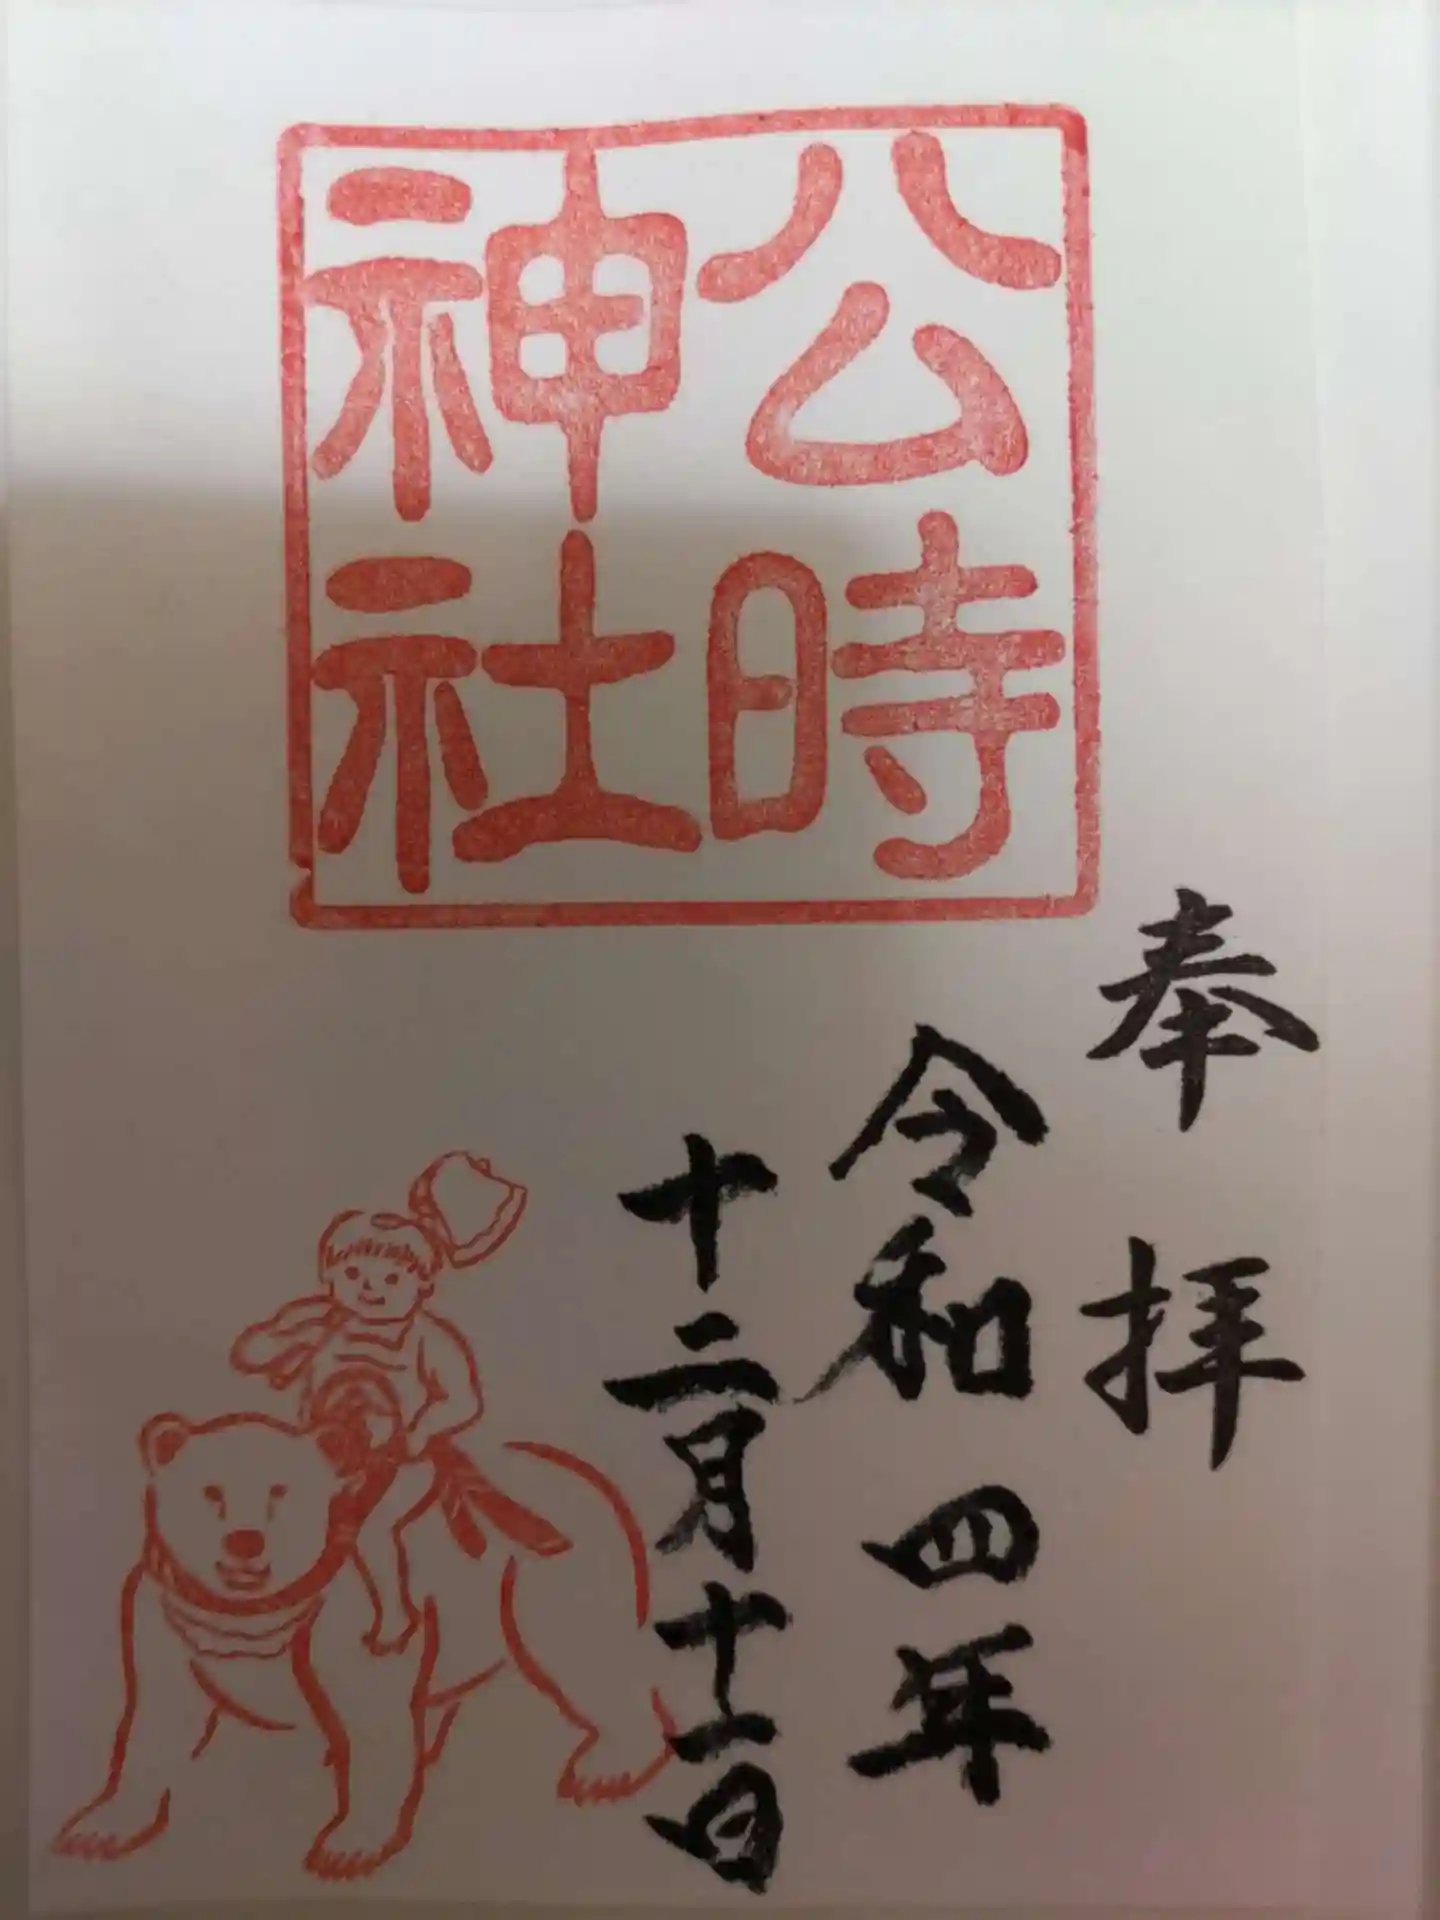 公時
神社
奉拝
令和四年
十二月十一日